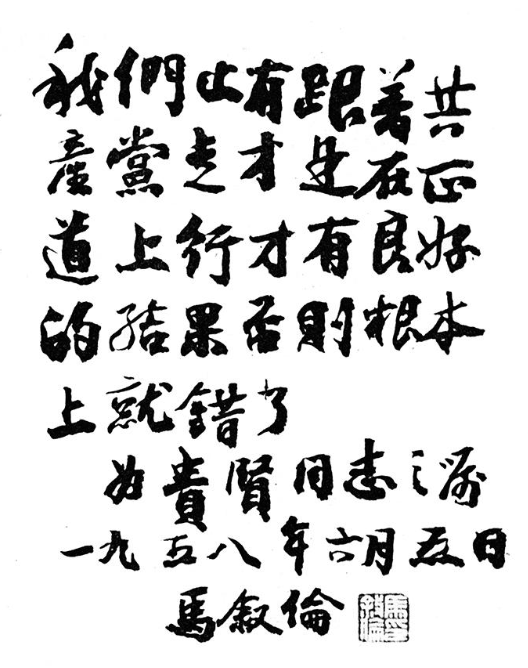 我們止有跟着共
產黨走才是在正
道上行才有良好
的結果否則根本
上就錯了
為貴賢同志之屬
一九五八年六月五日
馬敘倫
馬敘倫